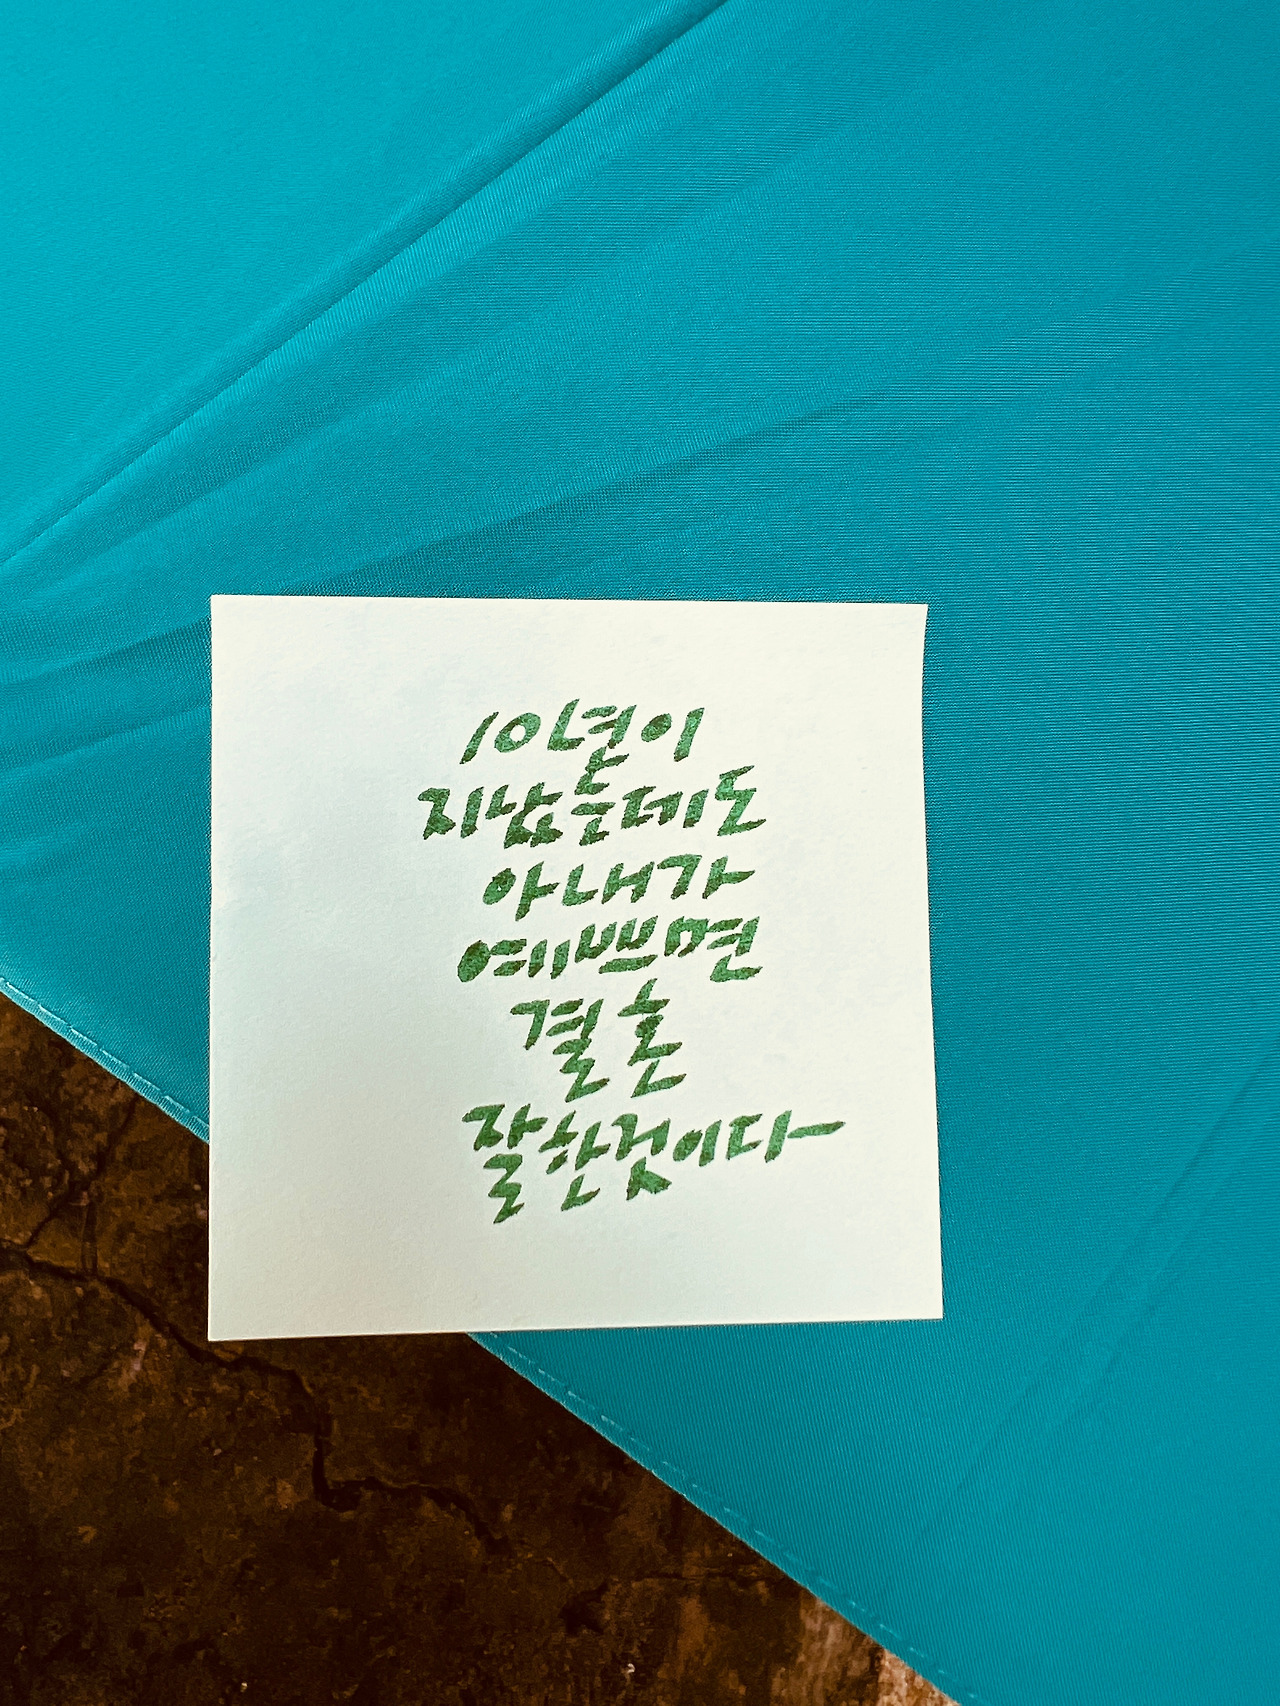 10년이
지났는데도
아내가
예쁘면
결혼
잘한것이다